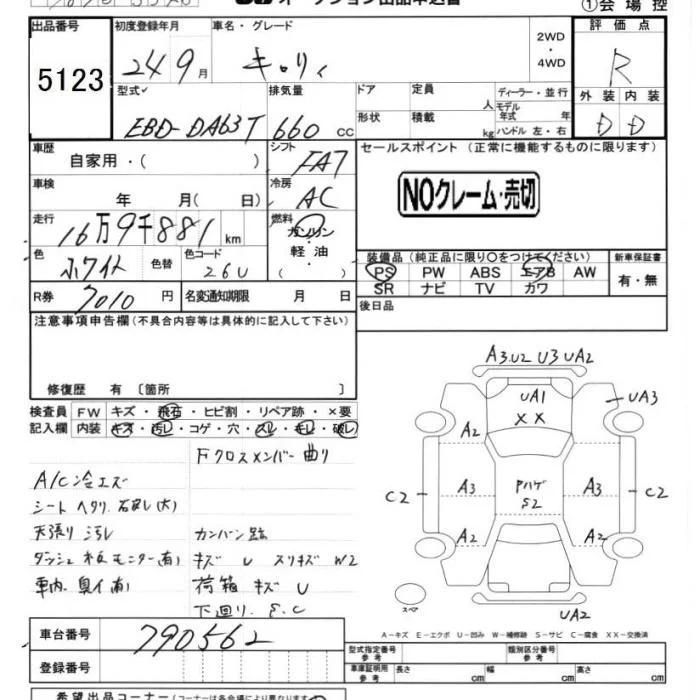 ①会場控
出品番号 初度登録年月 車名・グレード 2WD ・ 4WD 評価点
5123 24 9月 キャリィ R
型式 排気量 ドア 定員 人 ディーラー・並行 外装 内装
EBD-DA63T 660 cc 形状 積載 kg モデル年式 年 ハンドル 左・右 D D
車歴 自家用・( ) シフト FA7 セールスポイント (正常に機能するものに限ります)
車検 年 月( 日) 冷房 AC NOクレーム・売切
走行 16万9千881 km 燃料 ガソリン 軽油
色 ホワイト 色替 色コード 26U
装備品 (純正品に限り○をつけてください) 新車保証書
PS PW ABS エアB AW 有・無
SR ナビ TV カワ
R券 7010 円 名変通知期限 月 日 後日品
注意事項申告欄(不具合内容等は具体的に記入して下さい)
修復歴 有 〔箇所 〕
検査員 FW キズ・飛石・ヒビ割・リペア跡・×要
記入欄 内装 キズ・汚レ・コゲ・穴・スレ・キレ・破レ
Fクロスメンバー曲り
A/C冷エズ
シートヘタリ、破レ(大)
天張り汚レ カンバン跡
ダッシュ板モニター(有) キズ U スリキズ W2
車内臭イ(有) 荷箱キズ U
下廻り S.C
A3U2 U3 UA2
UA1
XX
UA3
A2
C2 A3 Pハゲ S2 A3 C2
A2 A2
スペア
UA2
A-キズ E-エクボ U-凹み W-補修跡 S-サビ C-腐食 XX-交換済
車台番号 790562
登録番号
型式指定番号 参考 類別区分番号 参考
車庫証明用 参考 長さ cm 幅 cm 高さ cm
希望出品コーナー